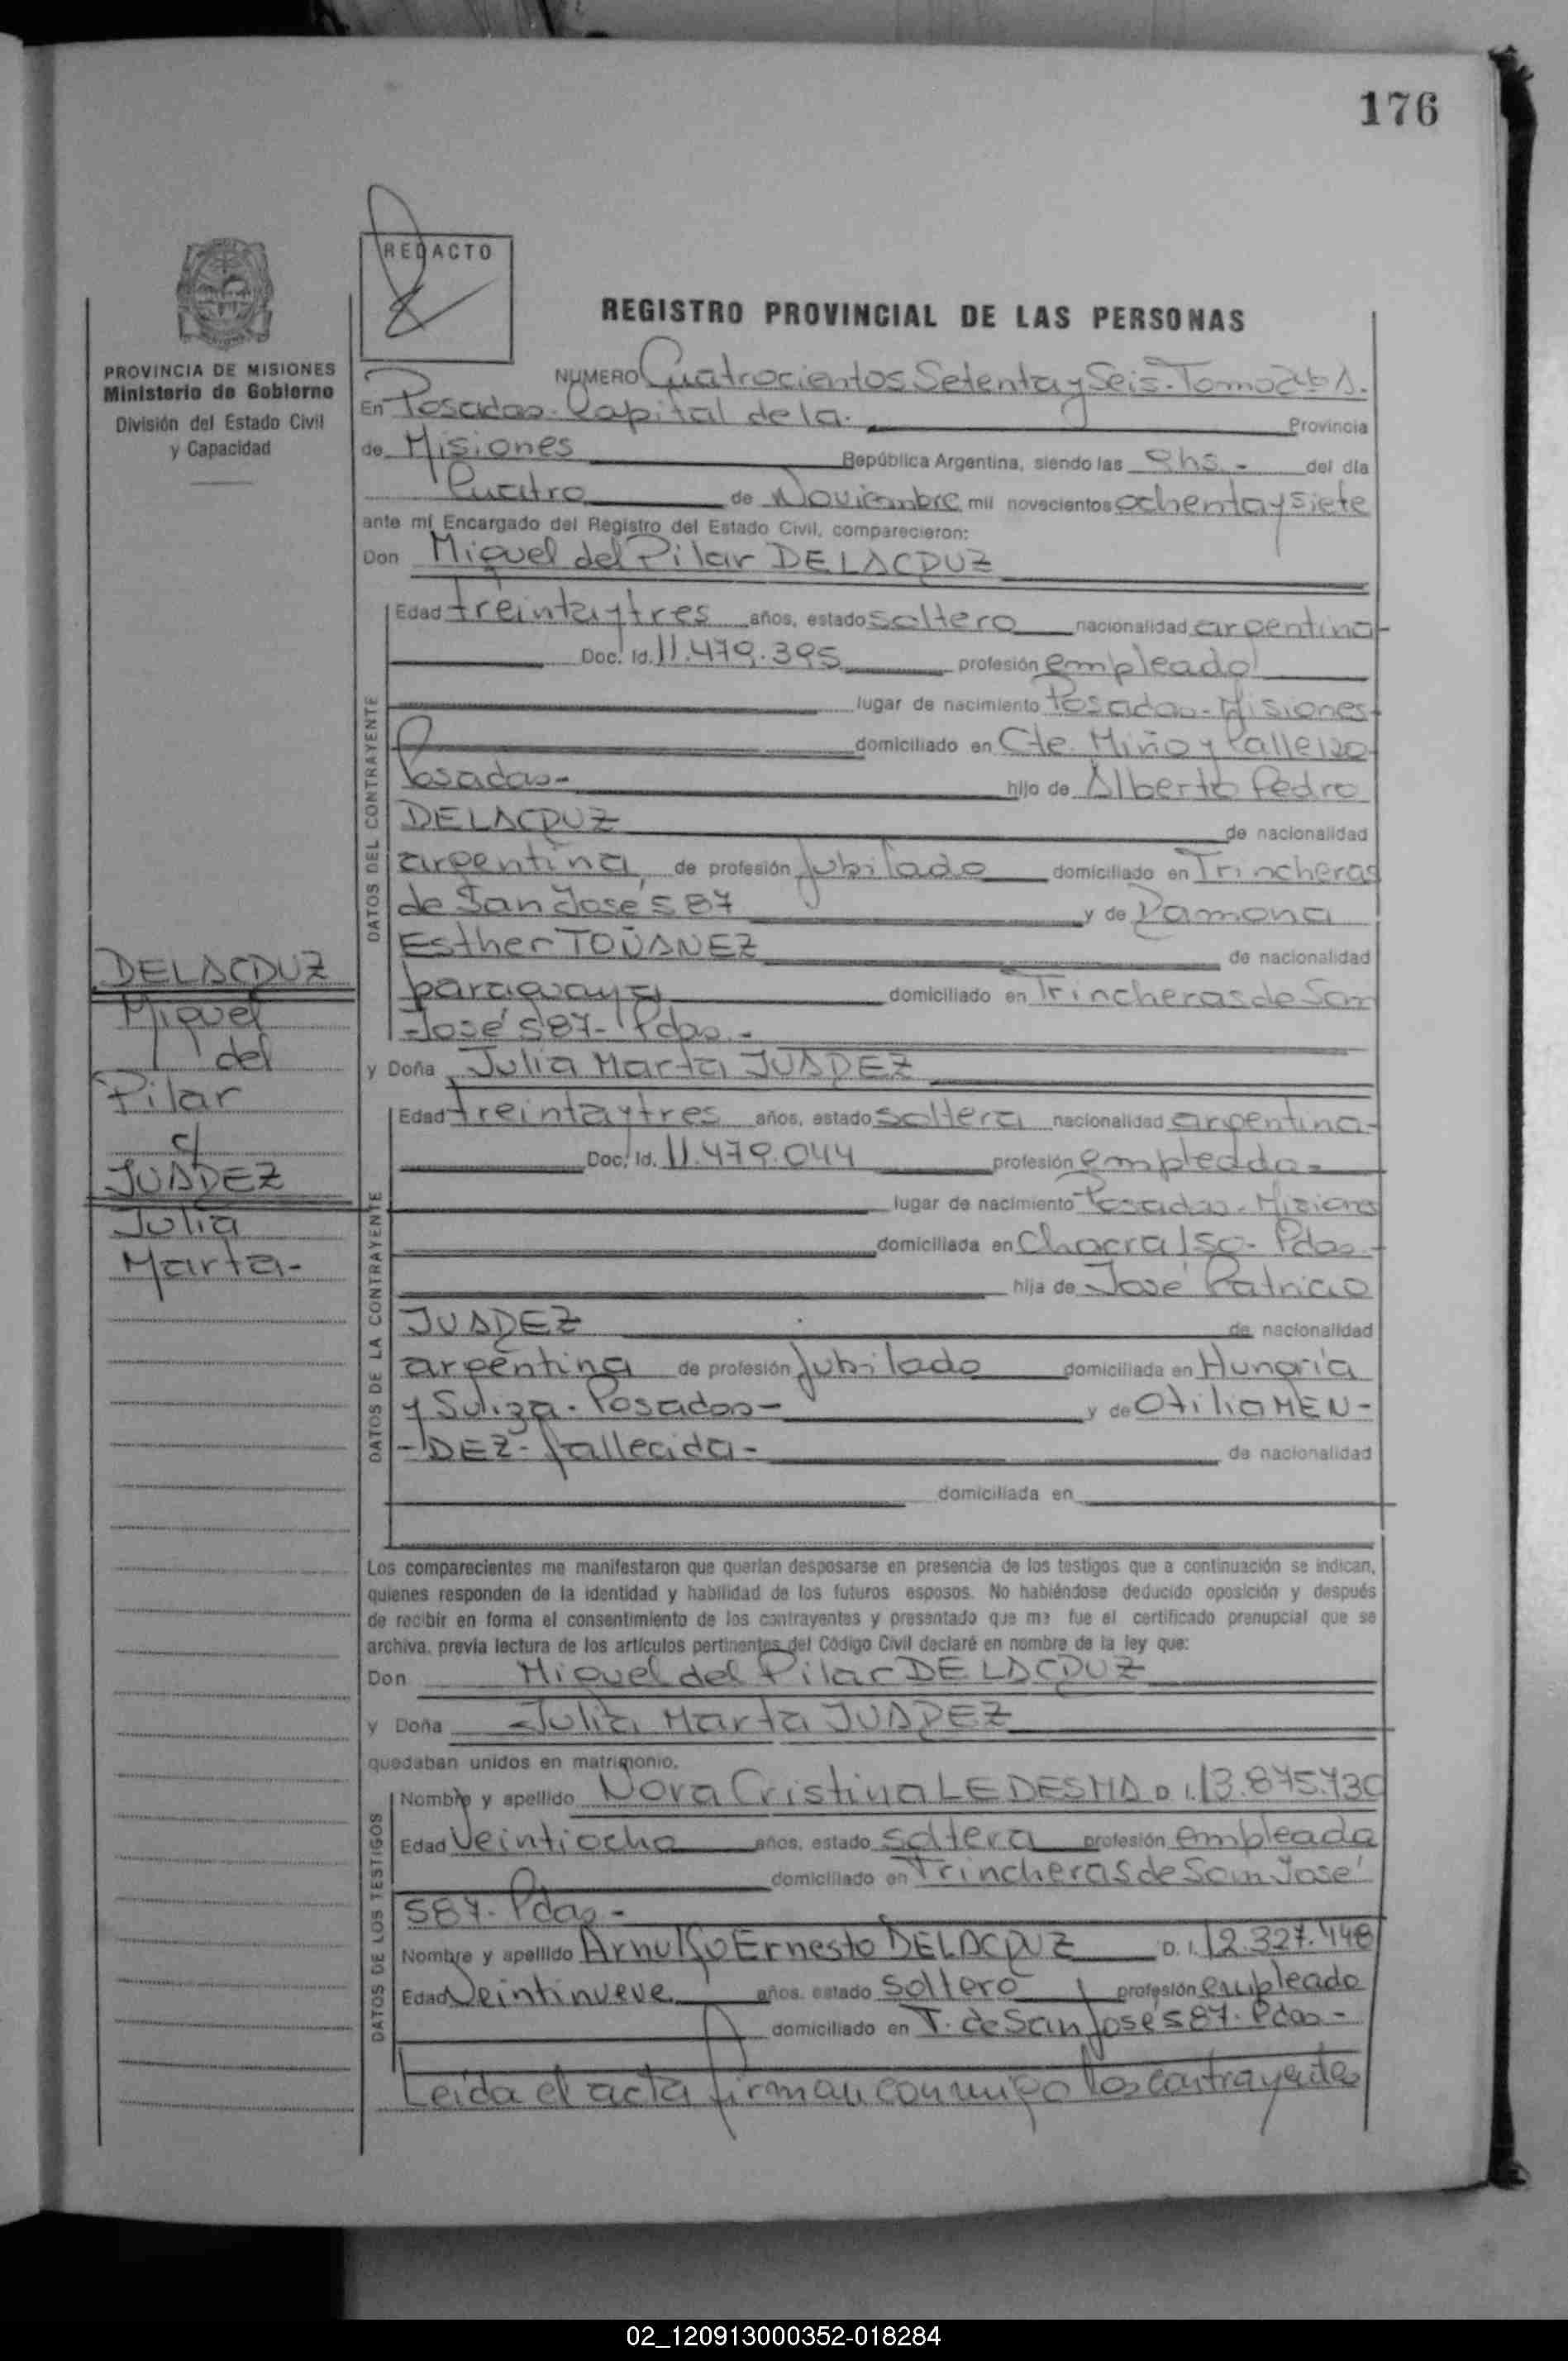 176
REDACTO
REGISTRO PROVINCIAL DE LAS PERSONAS
PROVINCIA DE MISIONES
Ministerio de Gobierno
División del Estado Civil
y Capacidad
NUMERO Cuatrocientos Setenta y Seis - Tomo
En Posadas - Capital de la. Provincia
de Misiones República Argentina, siendo las hs. - del día
Cuatro de Noviembre mil novecientos ochenta y siete
ante mí Encargado del Registro del Estado Civil, comparecieron:
Don Miguel del Pilar DELACRUZ
DATOS DEL CONTRAYENTE
Edad treinta y tres años, estado soltero nacionalidad argentina-
Doc. Id. 11.479.395 profesión empleado
lugar de nacimiento Posadas - Misiones
domiciliado en Cte. Miño y
Posadas- hijo de Alberto Pedro
DELACRUZ de nacionalidad
argentina, de profesión Jubilado domiciliado en Trincheras
de San José 587 y de Ramona
Esther de nacionalidad
paraguaya domiciliado en Trincheras de San
José 587 - Pdas.-
y Doña Julia Marta JUAREZ
DATOS DE LA CONTRAYENTE
Edad treinta y tres años, estado soltera nacionalidad argentina-
Doc. Id. 11.479.044 profesión empleada-
lugar de nacimiento Posadas - Misiones
domiciliada en Chacra Pdas.-
hija de José Patricio
JUAREZ de nacionalidad
argentina de profesión Jubilado domiciliada en Hungría
y Suiza - Posadas- y de Otilia MEN-
-DEZ - fallecida- de nacionalidad
domiciliada en
DELACRUZ
Miguel
del
Pilar
c/
JUAREZ
Julia
Marta-
Los comparecientes me manifestaron que querían desposarse en presencia de los testigos que a continuación se indican,
quienes responden de la identidad y habilidad de los futuros esposos. No habiéndose deducido oposición y después
de recibir en forma el consentimiento de los contrayentes y presentado que me fue el certificado prenupcial que se
archiva, previa lectura de los artículos pertinentes del Código Civil declaré en nombre de la ley que:
Don Miguel del Pilar DELACRUZ
y Doña Julia Marta JUAREZ
quedaban unidos en matrimonio.
DATOS DE LOS TESTIGOS
Nombre y apellido Nora Cristina LEDESMA D. I. 13.875.730
Edad Veintiocho años, estado soltera profesión empleada
domiciliado en Trincheras de San José
587 - Pdas-
Nombre y apellido Arnulfo Ernesto DELACRUZ D. I. 12.327.448
Edad Veintinueve años, estado soltero profesión empleado
domiciliado en T. de San José 587 - Pdas-
Leída el acta firman conmigo los contrayentes
02_120913000352-018284